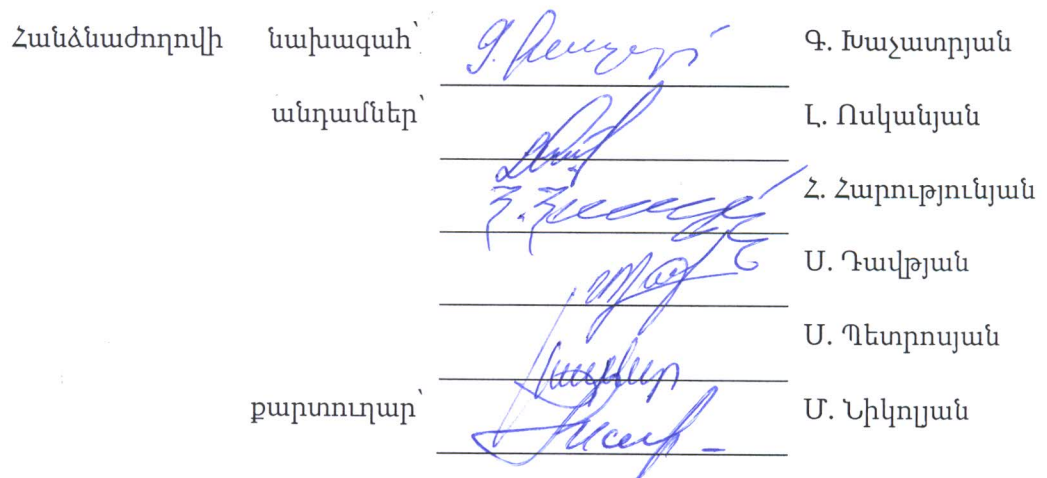 Հանձնաժողովի նախագահ՝ Գ. Խաչատրյան
անդամներ՝ Լ. Ոսկանյան
Հ. Հարությունյան
Ս. Դավթյան
Ս. Պետրոսյան
քարտուղար՝ Մ. Նիկոլյան